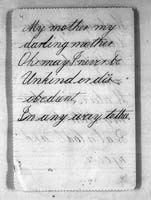 My mother my
darling mother
Oh may I never be
Unkind or dis-
obedient,
In any way to thee.